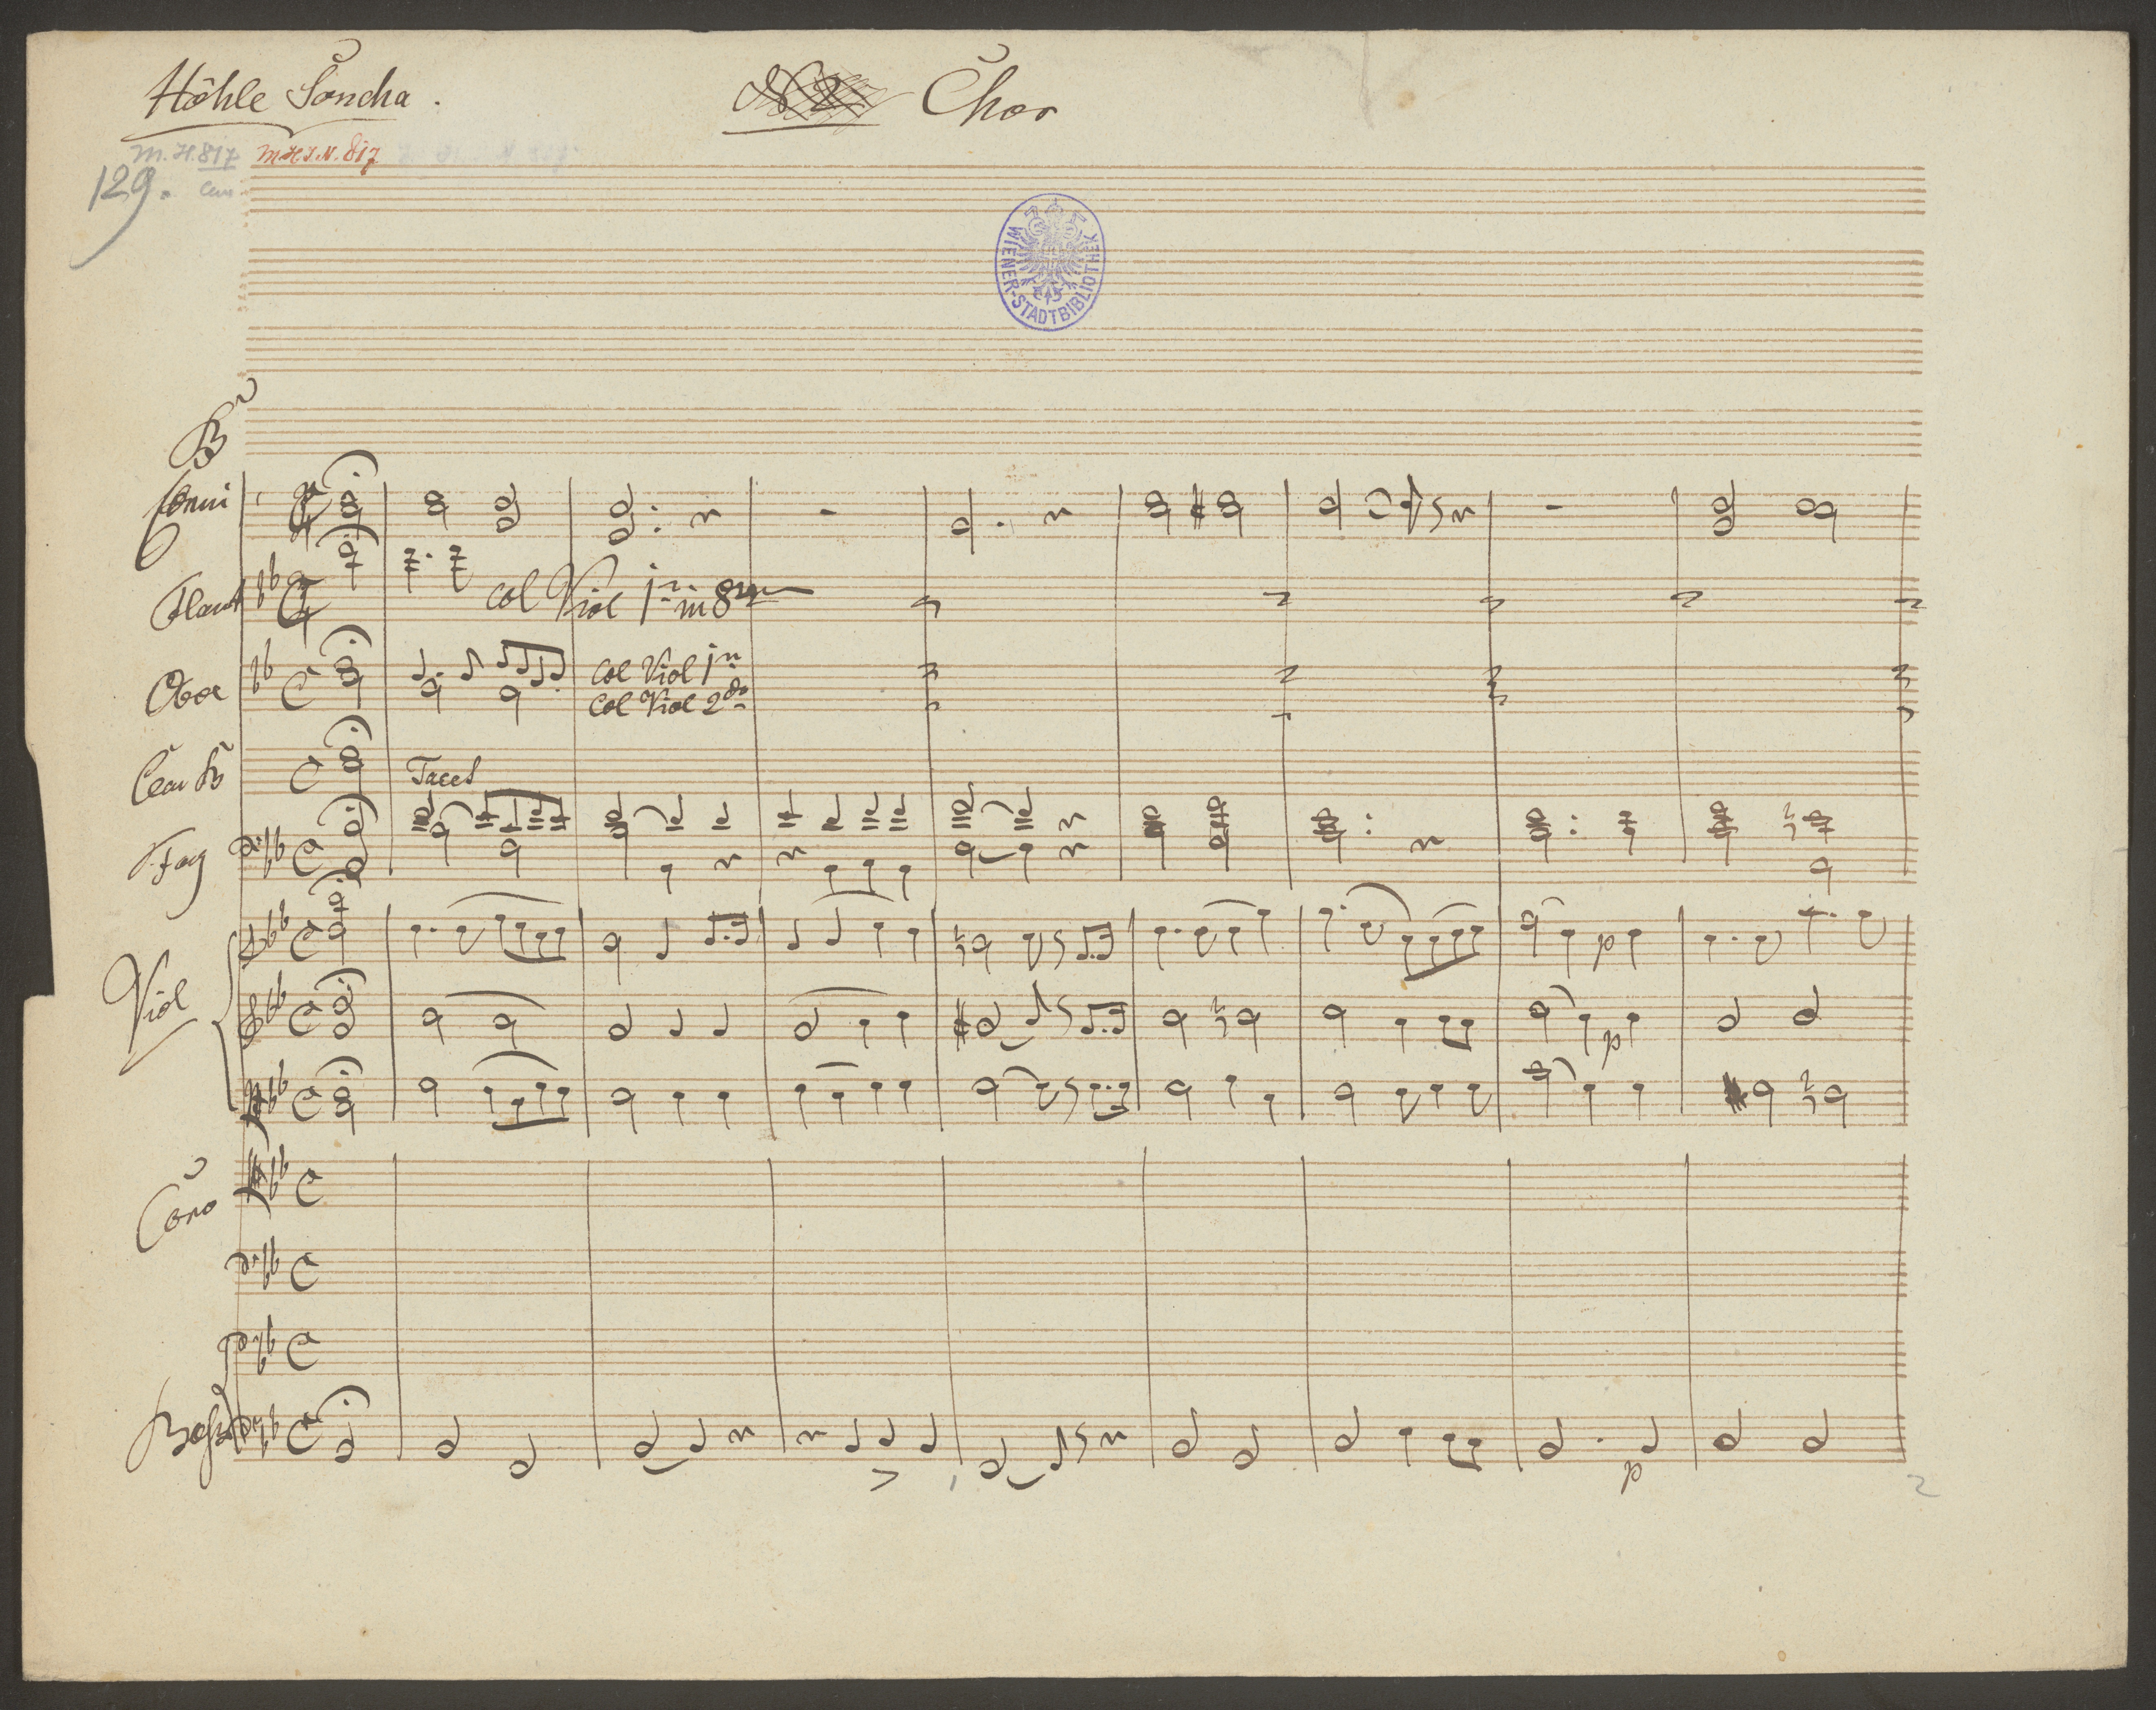 Höhle Soncha. Chor
M.H. 817 M.H.I.N. 817
129.
WIENER-STADTBIBLIOTHEK
B
Corni
Flaut col Viol 1mo in 8va
Oboe col Viol 1mo
col Viol 2do
Clar B Tacet
Fag
Viol
p
p
Coro
Basso
p
2